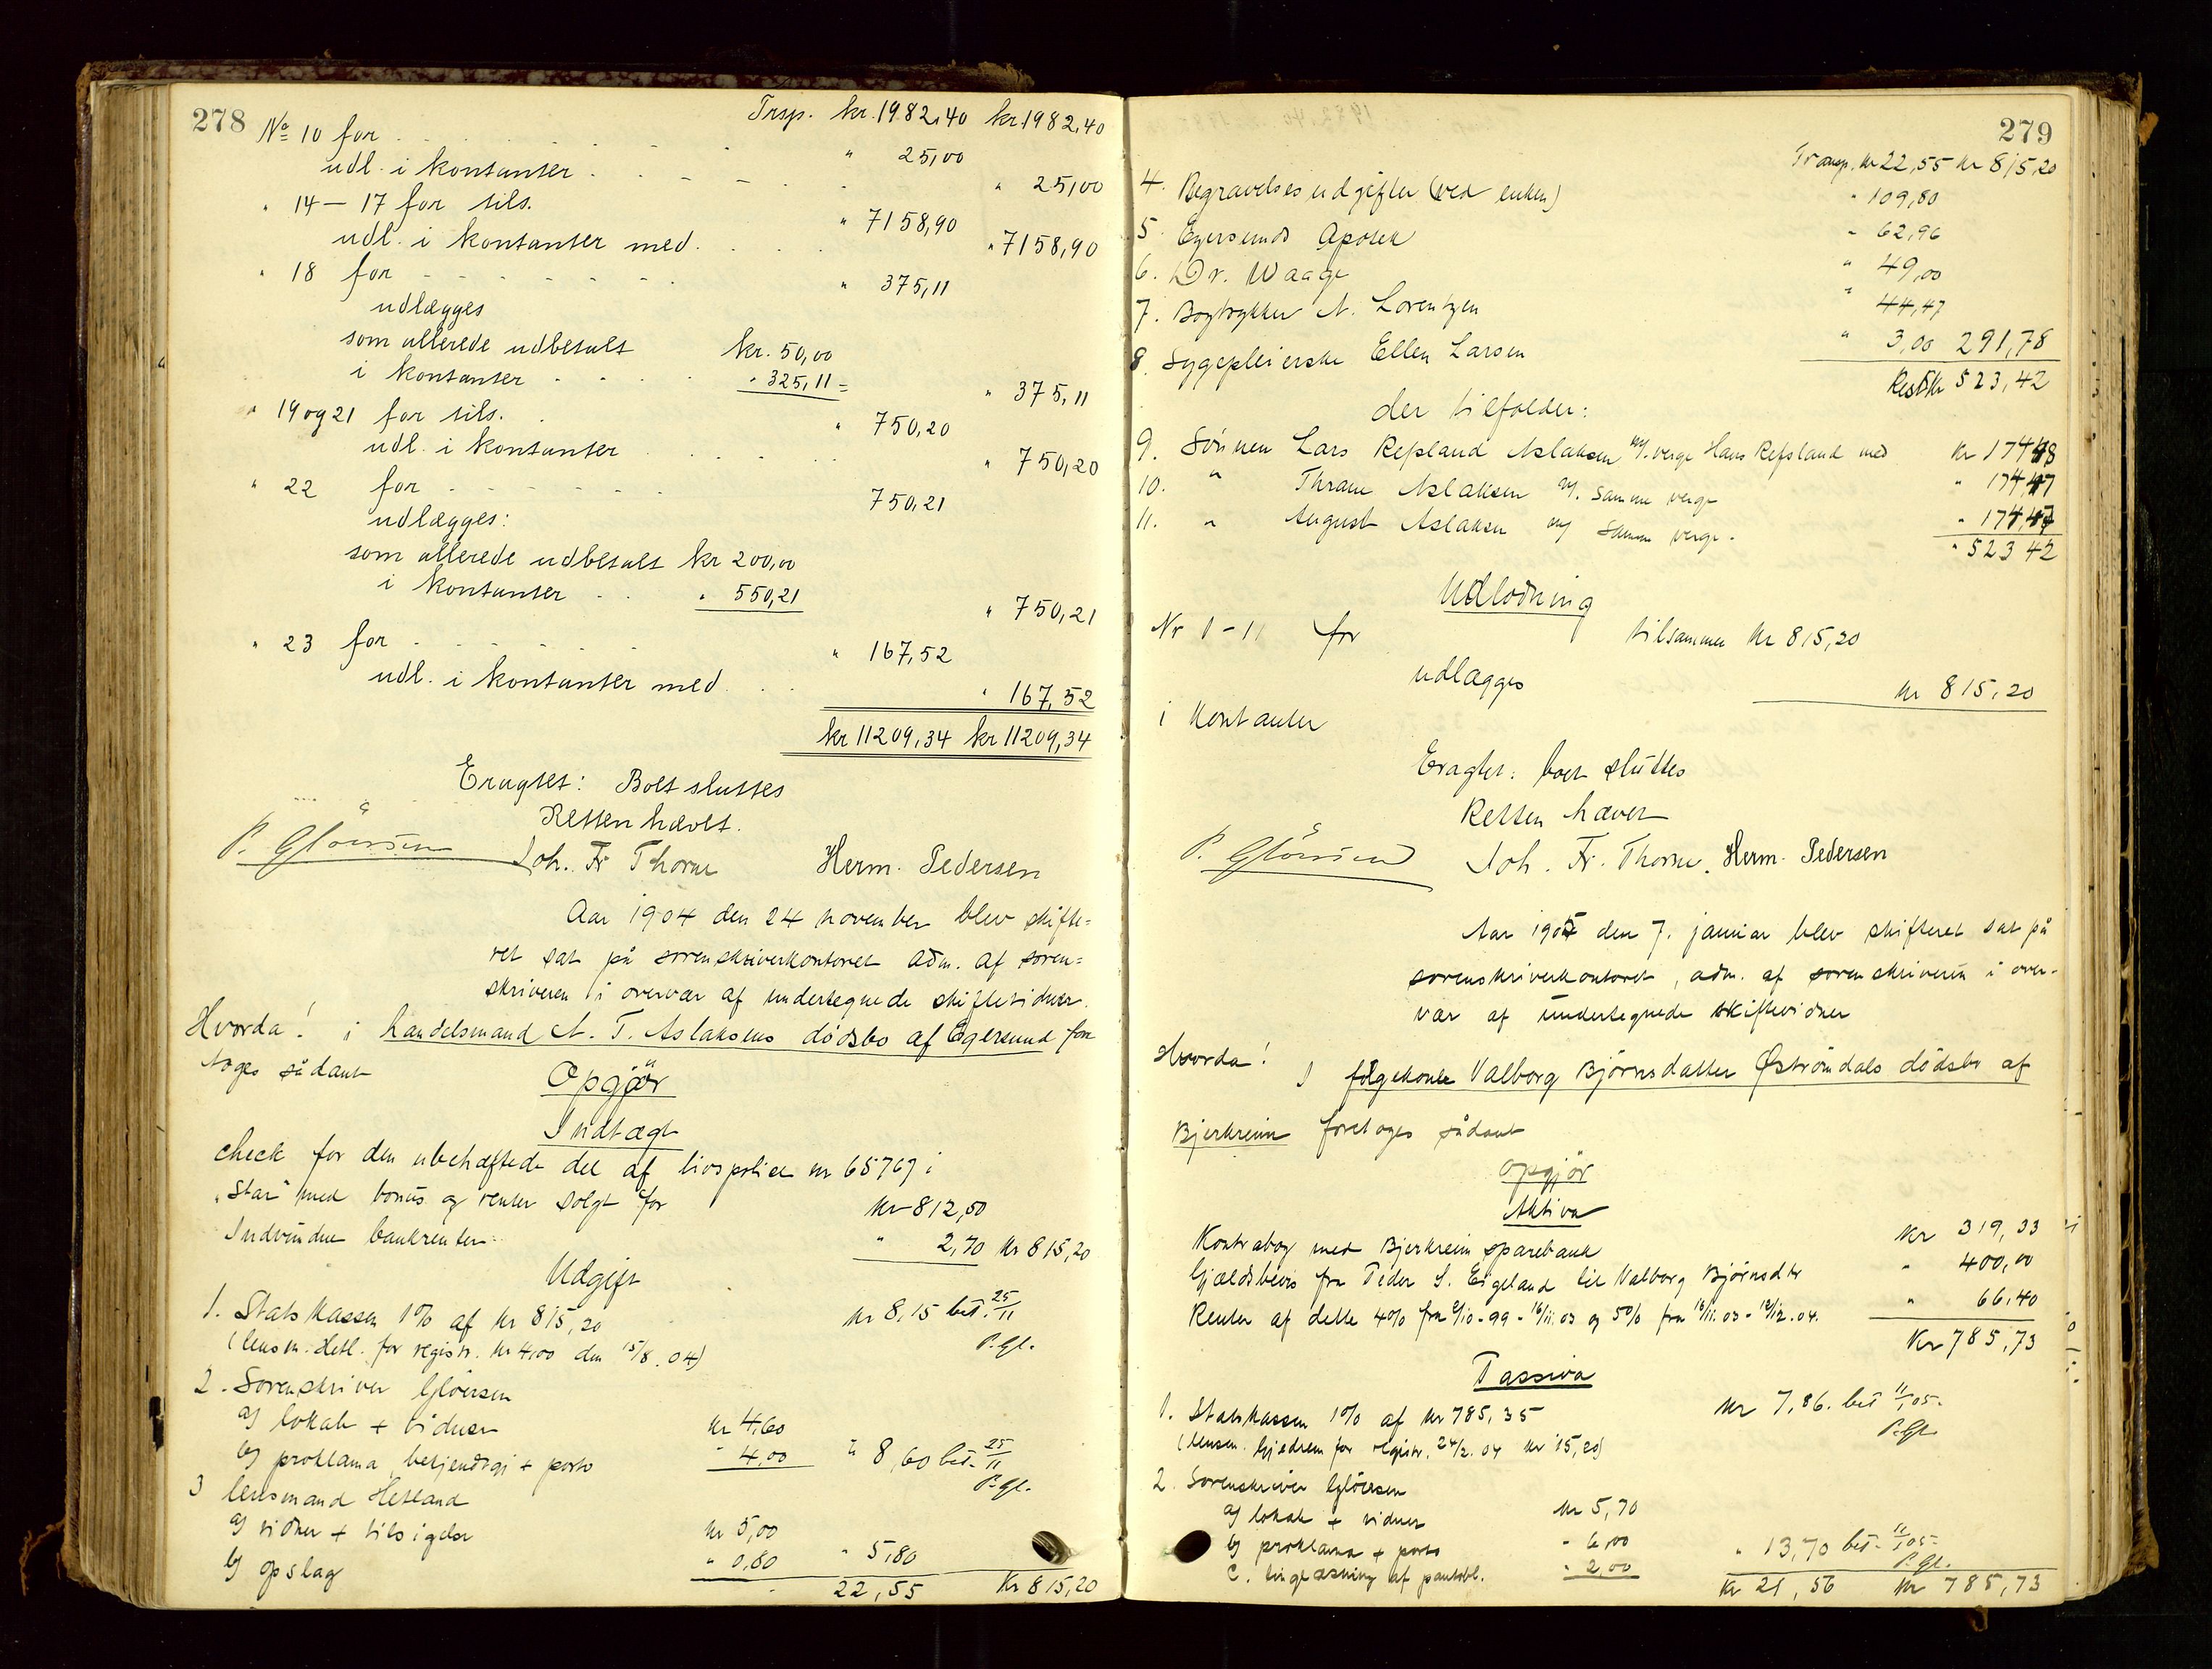 278
Trsp. kr. 1982,40 kr 1982,40
No 10 for . . . . . " 25,00
udl. i kontanter . . . . . " 25,00
" 14 — 17 for tils. " 7158,90
udl. i kontanter med . . . " 7158,90
" 18 for . . . . . " 375,11
udlægges
som allerede udbetalt kr. 50,00
i kontanter . . . . " 325,11 = " 375,11
" 19 og 21 for tils. . " 750,20
udl. i kontanter . . . . " 750,20
" 22 for . . . . . 750,21
udlægges:
som allerede udbetalt kr 200,00
i kontanter . . " 550,21 " 750,21
" 23 for . . . . . " 167,52
udl. i kontanter med . . " 167,52
kr 11209,34 kr 11209,34
Eragtet: Boet sluttes
Retten hævet.
P. Gløersen Joh. Fr Thorne Herm. Pedersen
Aar 1904 den 24 november blev skifte=
ret sat på sorenskriverkontoret adm. af soren=
skriveren i overvær af undertegnede skiftevidner.
Hvorda! i handelsmand A. T. Aslaksens dødsbo af Egersund fore
toges sådant
Opgjør
Indtægt
check for den ubehæftede del af livspolice nr 65767 i
"Star" med bonus og renter solgt for kr 812,50
Indvundne bankrenter " 2,70 kr 815,20
Udgift
1. Statskassen 1% af kr 815,20 kr 8,15 bet. 25/11
(lensm. Hetl. for registr. kr 4,00 den 15/8. 04) P. Gl.
2. Sorenskriver Gløersen
a) lokale + vidner kr 4,60
b) proklama, bekjendtgj + porto " 4,00 " 8,60 bet. 25/11
P. Gl.
3 lensmand Hetland
a) vidner + tilsigelse kr 5,00
b) opslag " 0,80 " 5,80
" 22,55 kr 815,20
279
Transp. kr 22,55 kr 815,20
4. Begravelsesudgifter (ved enken) " 109,80
5. Egersunds Apotek " 62,96
6. Dr. Waage " 49,00
7. Bogtrykker N. Lorentzen " 44,47
8. Sygepleierske Ellen Larsen " 3,00 291,78
Rest kr 523,42
der tilfalder:
9. Sønnen Lars Refsland Aslaksen v/. verge Hans Refsland med kr 174,48
10. " Thrane Aslaksen v/. samme verge " 174,47
11. " August Aslaksen v/ samme verge. " 174,47
" 523 42
Udlodning
Nr 1-11 for tilsammen kr 815,20
udlægges
i kontanter kr 815,20
Eragtet: boet sluttes
Retten hævet
P. Gløersen Joh. Fr. Thorne. Herm. Pedersen
Aar 1905 den 7. januar blev skifteret sat på
sorenskriverkontoret, adm. af sorenskriveren i over-
vær af undertegnede skiftevidner
Hvorda!
I folgekone Valborg Bjørnsdatter Østrømdals dødsbo af
Bjerkreim foretoges sådant
Opgjør
Aktiva
Kontrabog med Bjerkreim sparebank kr 319,33
Gjældsbevis fra Peder S. Eigeland til Valborg Bjørnsdtr " 400,00
Renter af dette 4% fra 9/10-99 - 16/11.03 og 5% fra 16/11.03 - 12/12.04. " 66,40
Kr 785,73
Passiva
1. Statskassen 1% af kr 785,35 kr 7,86. bet 11/1 05.
(lensm. Gjedrem for registr. 24/2. 04 kr 15,20) P. Gl.
2. Sorenskriver Gløersen
a) lokale + vidner kr 5,70
b) proklama + porto " 6,00
c. tinglæsning af pantobl. " 2,00 " 13,70 bet. 11/1 05.
P. Gl.
kr 21,56 kr 785,73